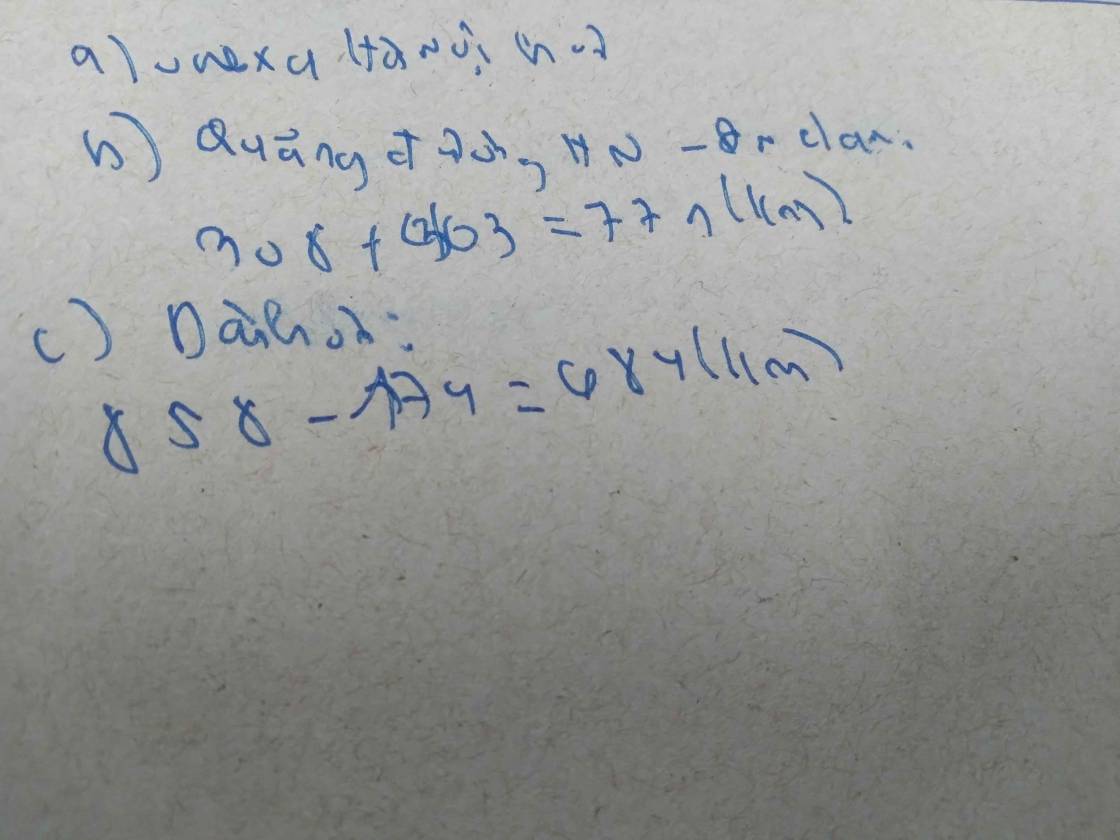 a) Hà Nội
b) Quãng đường HN -
308 + 463 = 771 (km)
c) Dài hơn:
858 - 174 = 684 (km)